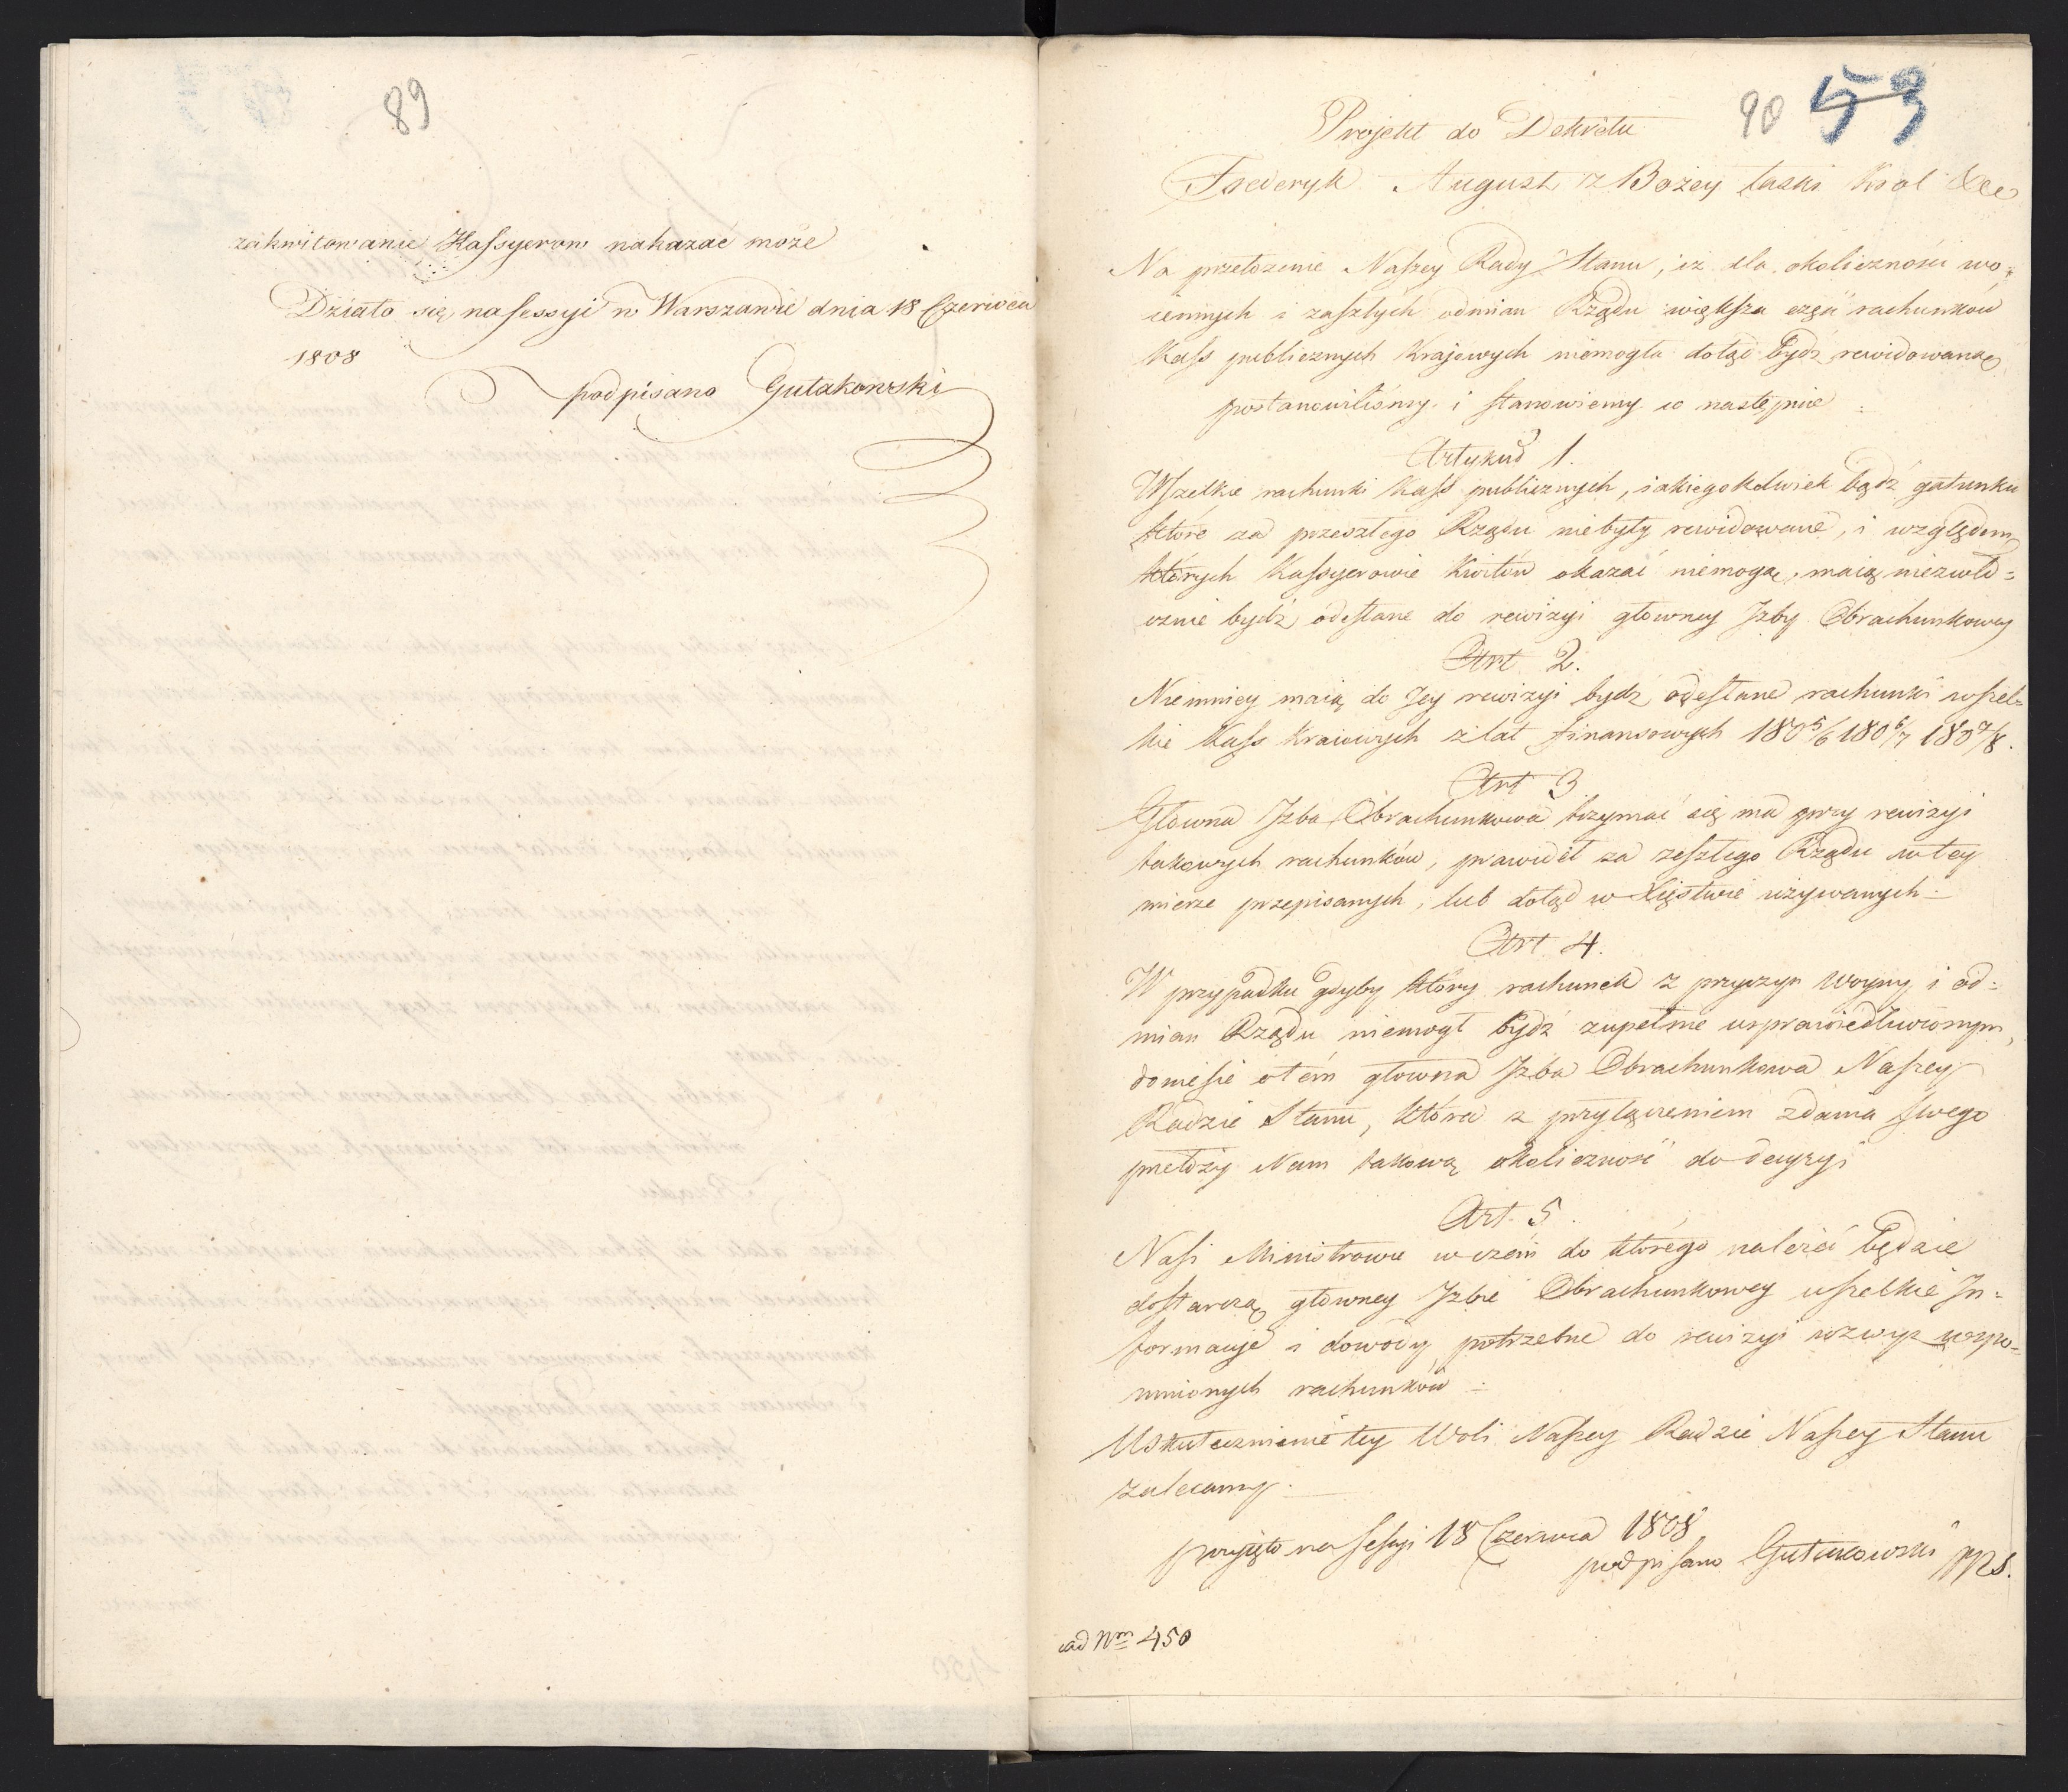 89
zakwitowanie Kassyerow nakazać może
Działo się na sessyi w Warszawie dnia 18 Czerwca
1808
podpisano Gutakowski
90 53
Projekt do Dekretu
Frederyk August z Bożey łaski Krol &c
Na przełożenie Naszey Rady Stanu, iż dla okoliczności wo-
iennych i zaszłych odmian Rządu większa część rachunków
Kass publicznych Krajowych niemogła dotąd bydź rewidowaną
postanowiliśmy i stanowiemy co następuie
Artykuł 1.
Wszelkie rachunki Kass publicznych, iakiegokolwiek bądź gatunku
które za przeszłego Rządu niebyły rewidowane, i względem
których Kassyerowie Kwitów okazać niemogą, maią niezwło=
cznie bydź odesłane do rewizyi głowney Izby Obrachunkowey
Art 2.
Niemniey maią do Jey rewizyi bydź odesłane rachunki wszel=
kie Kass Kraiowych z lat finansowych 1805/6 1806/7 1807/8.
Art 3
Główna Izba Obrachunkowa trzymać się ma przy rewizyi
takowych rachunków, prawideł za zeszłego Rządu w tey
mierze przepisanych, lub dotąd w Xięstwie używanych
Art. 4.
W przypadku gdyby który rachunek z przyczyn Woyny i od=
mian Rządu niemogł bydź zupełnie usprawiedliwionym,
doniesie o tém główna Izba Obrachunkowa Naszey
Radzie Stanu, która z przyłączeniem zdania swego
przełoży Nam takową okoliczność do decyzyi
Art. 5.
Nasi Ministrowie w czém do którego należeć będzie
dostarczą główney Izbie Obrachunkowey wszelkie In=
formacye i dowody potrzebne do rewizyi wzwyż wspo=
mnionych rachunków
Uskutecznienie tey Woli Naszey Radzie Naszey Stanu
zalecamy.
przyjęto na Sessyi 18 Czerwca 1808,
podpisano Gutakowski PRS.
ad Nrm 450